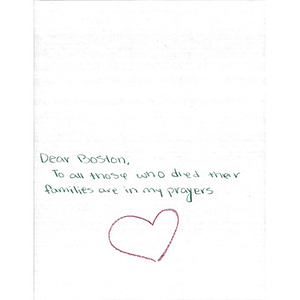 Dear Boston,
To all those who died their
families are in my prayers